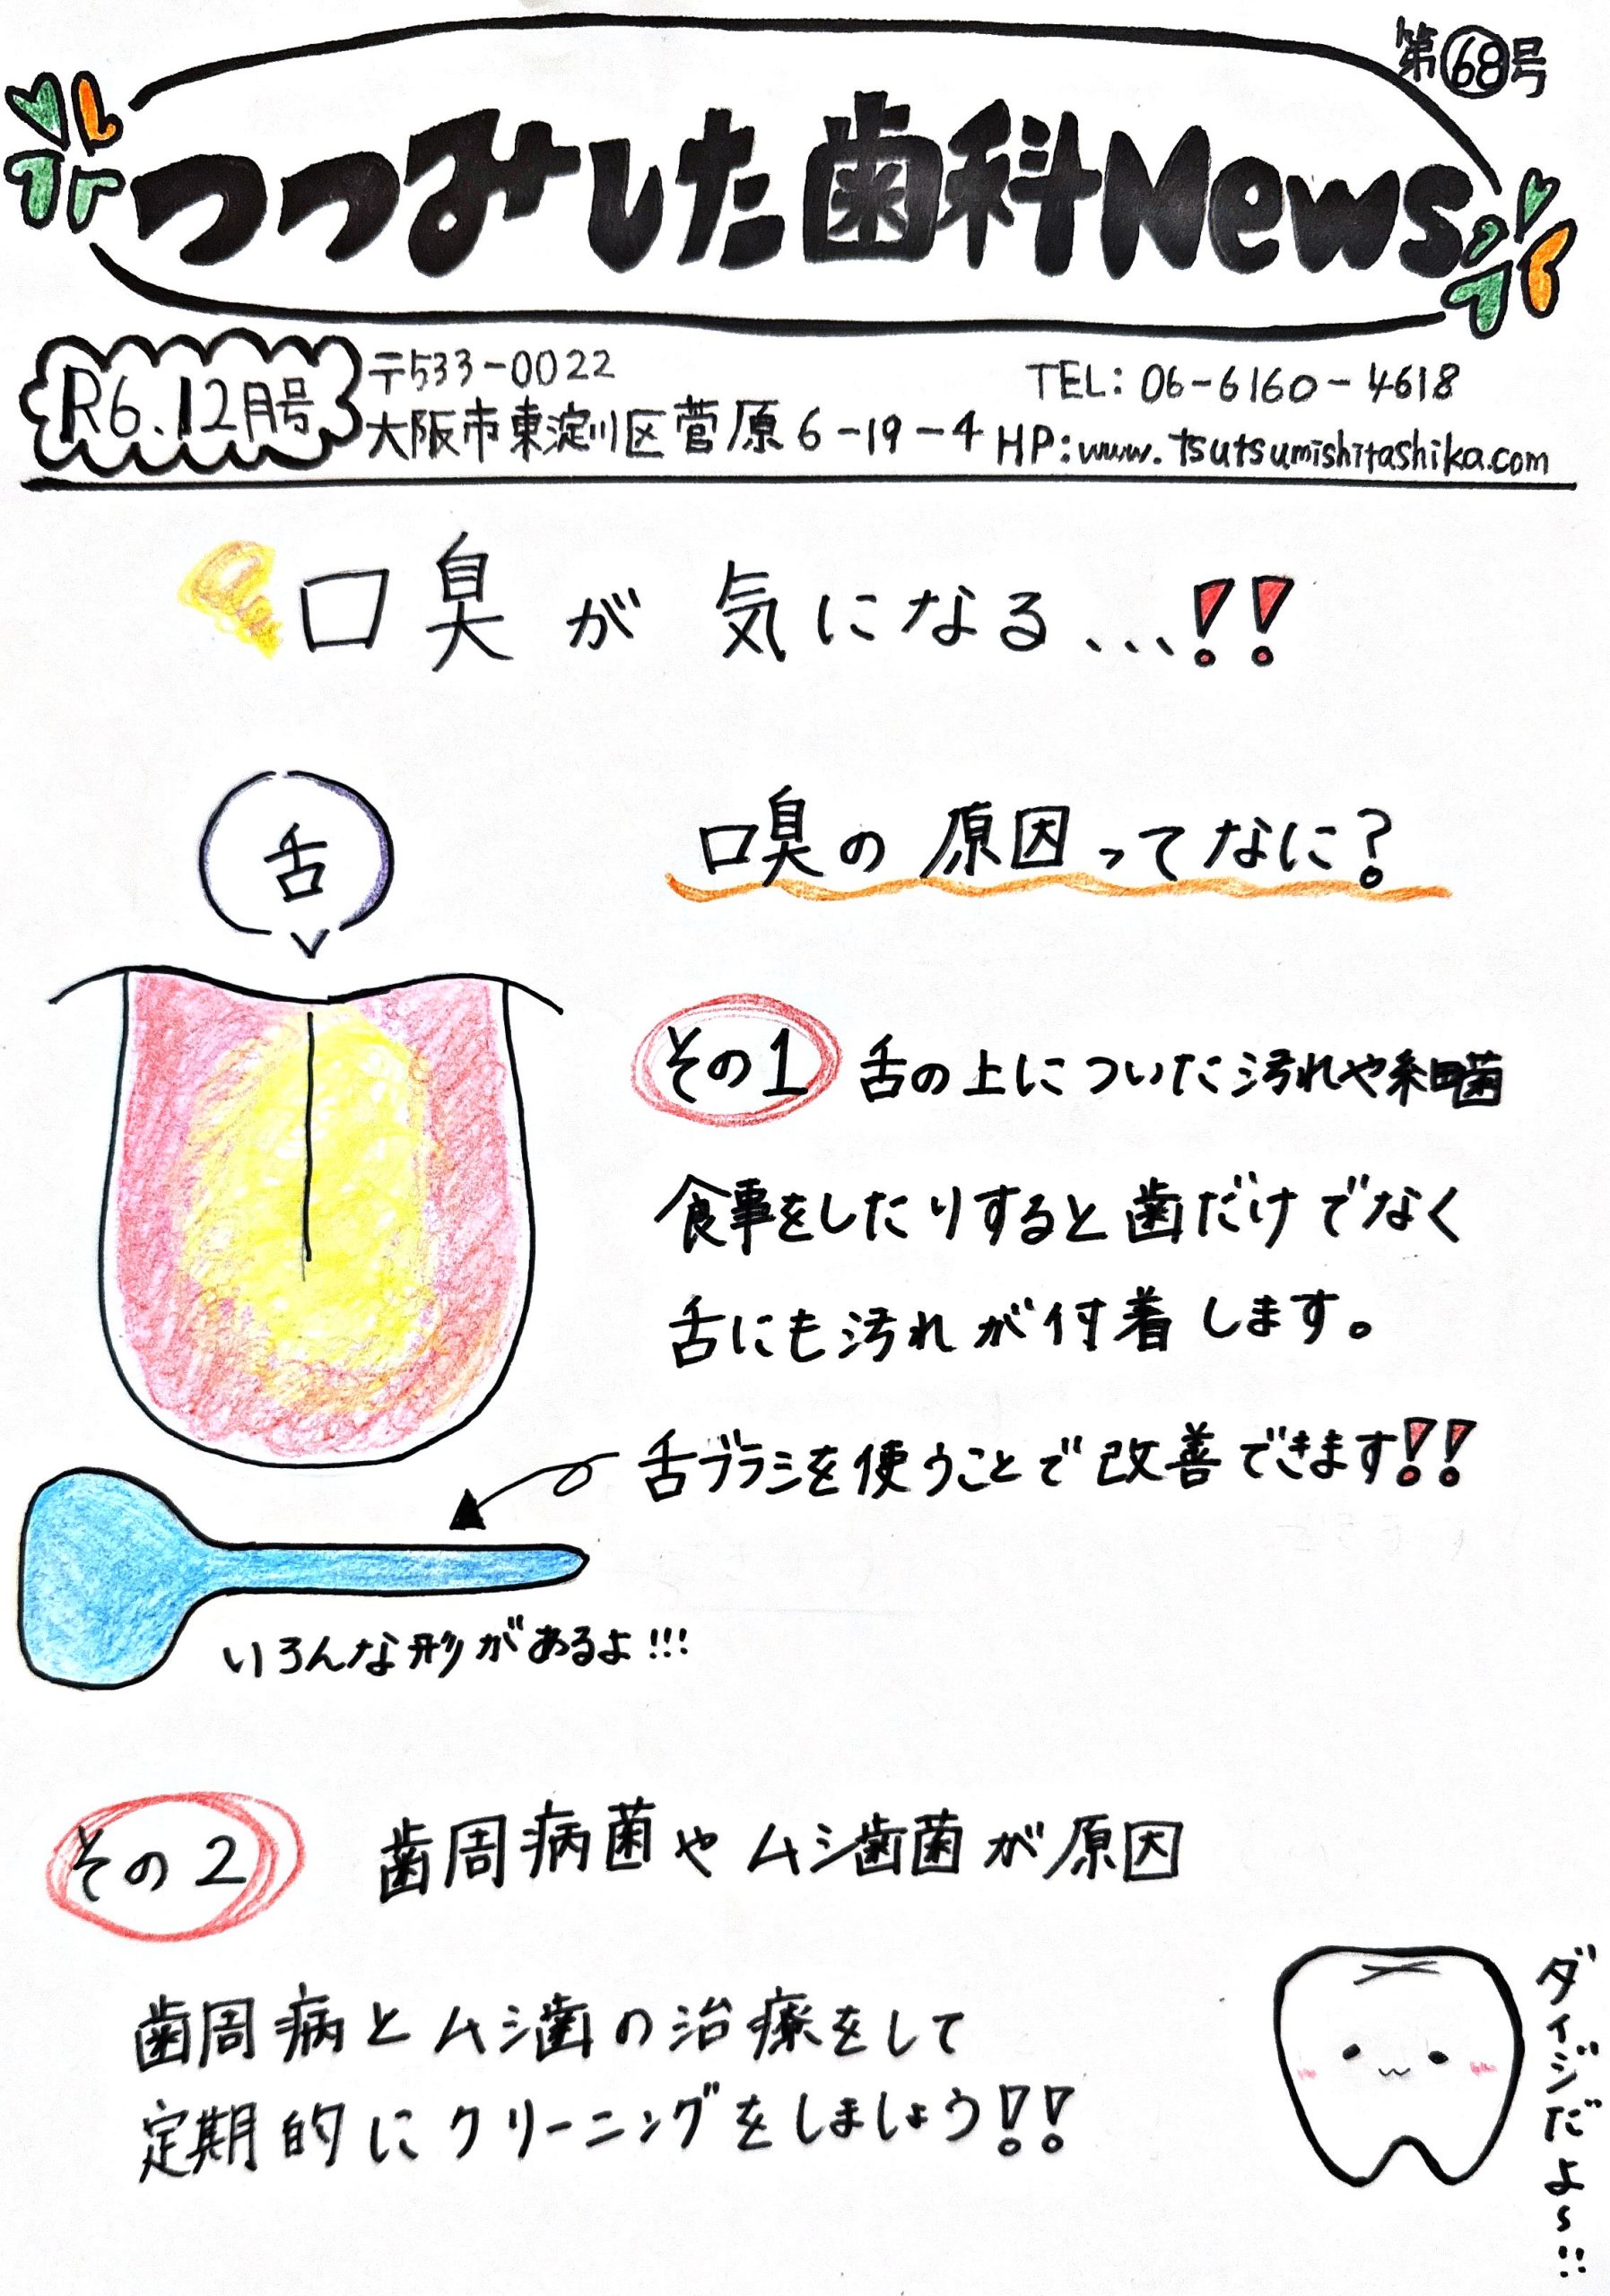 第68号
つつみした歯科News
R6.12月号
〒533-0022
大阪市東淀川区菅原6-19-4
TEL:06-6160-4618
HP:www.tsutsumishitashika.com
口臭が気になる...!!
舌
口臭の原因ってなに?
その1 舌の上についた汚れや細菌
食事をしたりすると歯だけでなく
舌にも汚れが付着します。
舌ブラシを使うことで改善できます!!
いろんな形があるよ!!!
その2 歯周病菌やムシ歯菌が原因
歯周病とムシ歯の治療をして
定期的にクリーニングをしましょう!!
ダイジだよ~!!